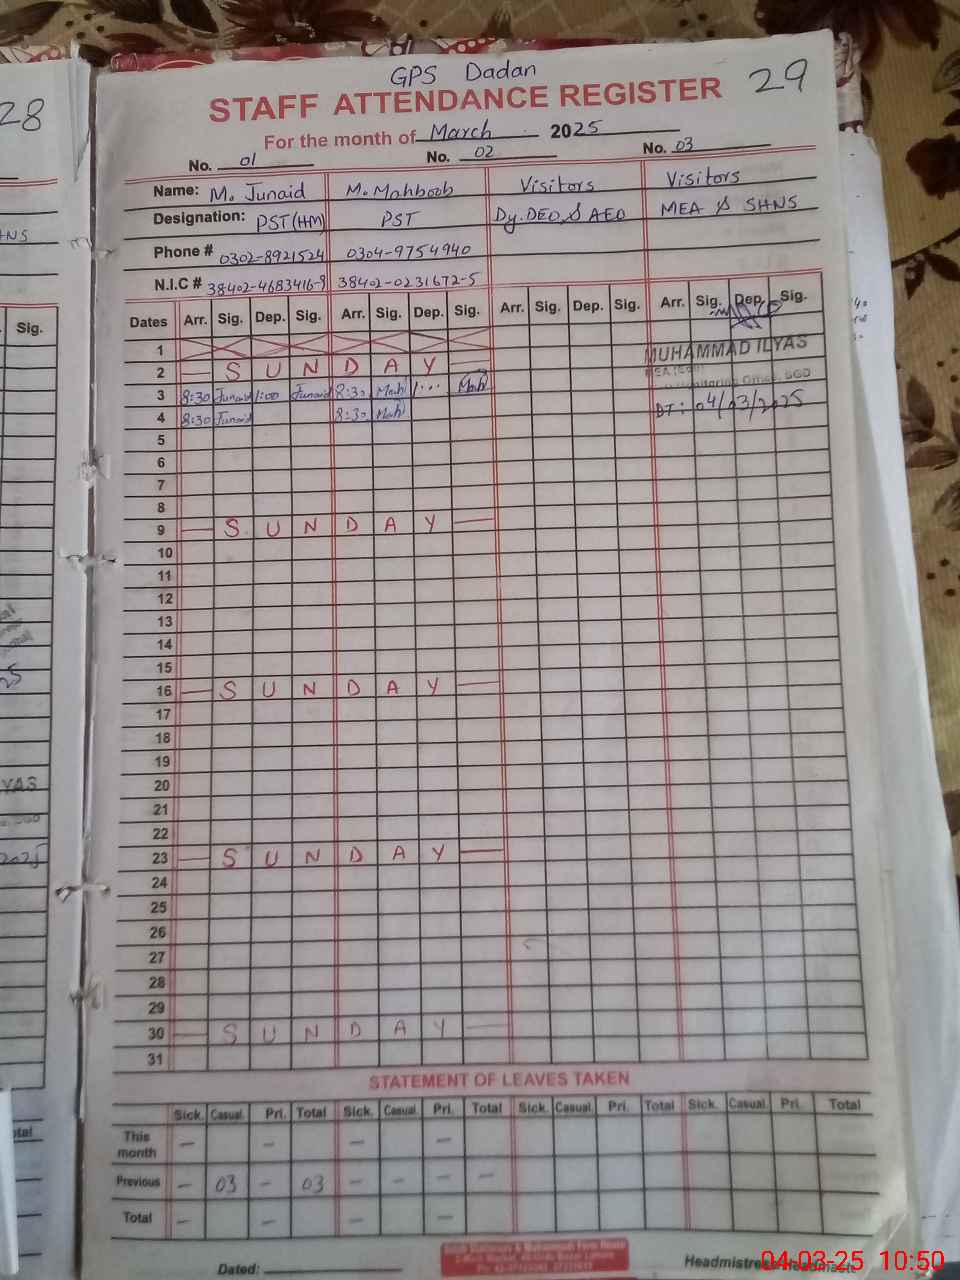 28
GPS Dadan
29
STAFF ATTENDANCE REGISTER
For the month of March 2025
No. 01 No. 02 No. 03
Name: M. Junaid M. Mahboob Visitors Visitors
Designation: PST (HM) PST Dy. DEO & AEO MEA & SHNS
Phone # 0302-8921524 0304-9754940
N.I.C # 38402-4683416-9 38402-0231672-5
Dates Arr. Sig. Dep. Sig. Arr. Sig. Dep. Sig. Arr. Sig. Dep. Sig. Arr. Sig. Dep. Sig.
1
2 — S U N D A Y —
MUHAMMAD ILYAS
3 8:30 Junaid 1:00 Junaid 8:30 Mah 1... Mah
4 8:30 Junaid 8:30 Mah
DT: 04/03/2025
5
6
7
8
9 — S U N D A Y —
10
11
12
13
14
15
16 — S U N D A Y —
17
18
19
20
21
22
23 — S U N D A Y —
24
25
26
27
28
29
30 — S U N D A Y —
31
STATEMENT OF LEAVES TAKEN
Sick. Casual. Pri. Total Sick. Casual. Pri. Total Sick. Casual. Pri. Total Sick. Casual. Pri. Total
This month — — — —
Previous — 03 — 03 — — — —
Total — — — —
Dated:
Headmistress
04-03-25 10:50
Sig.